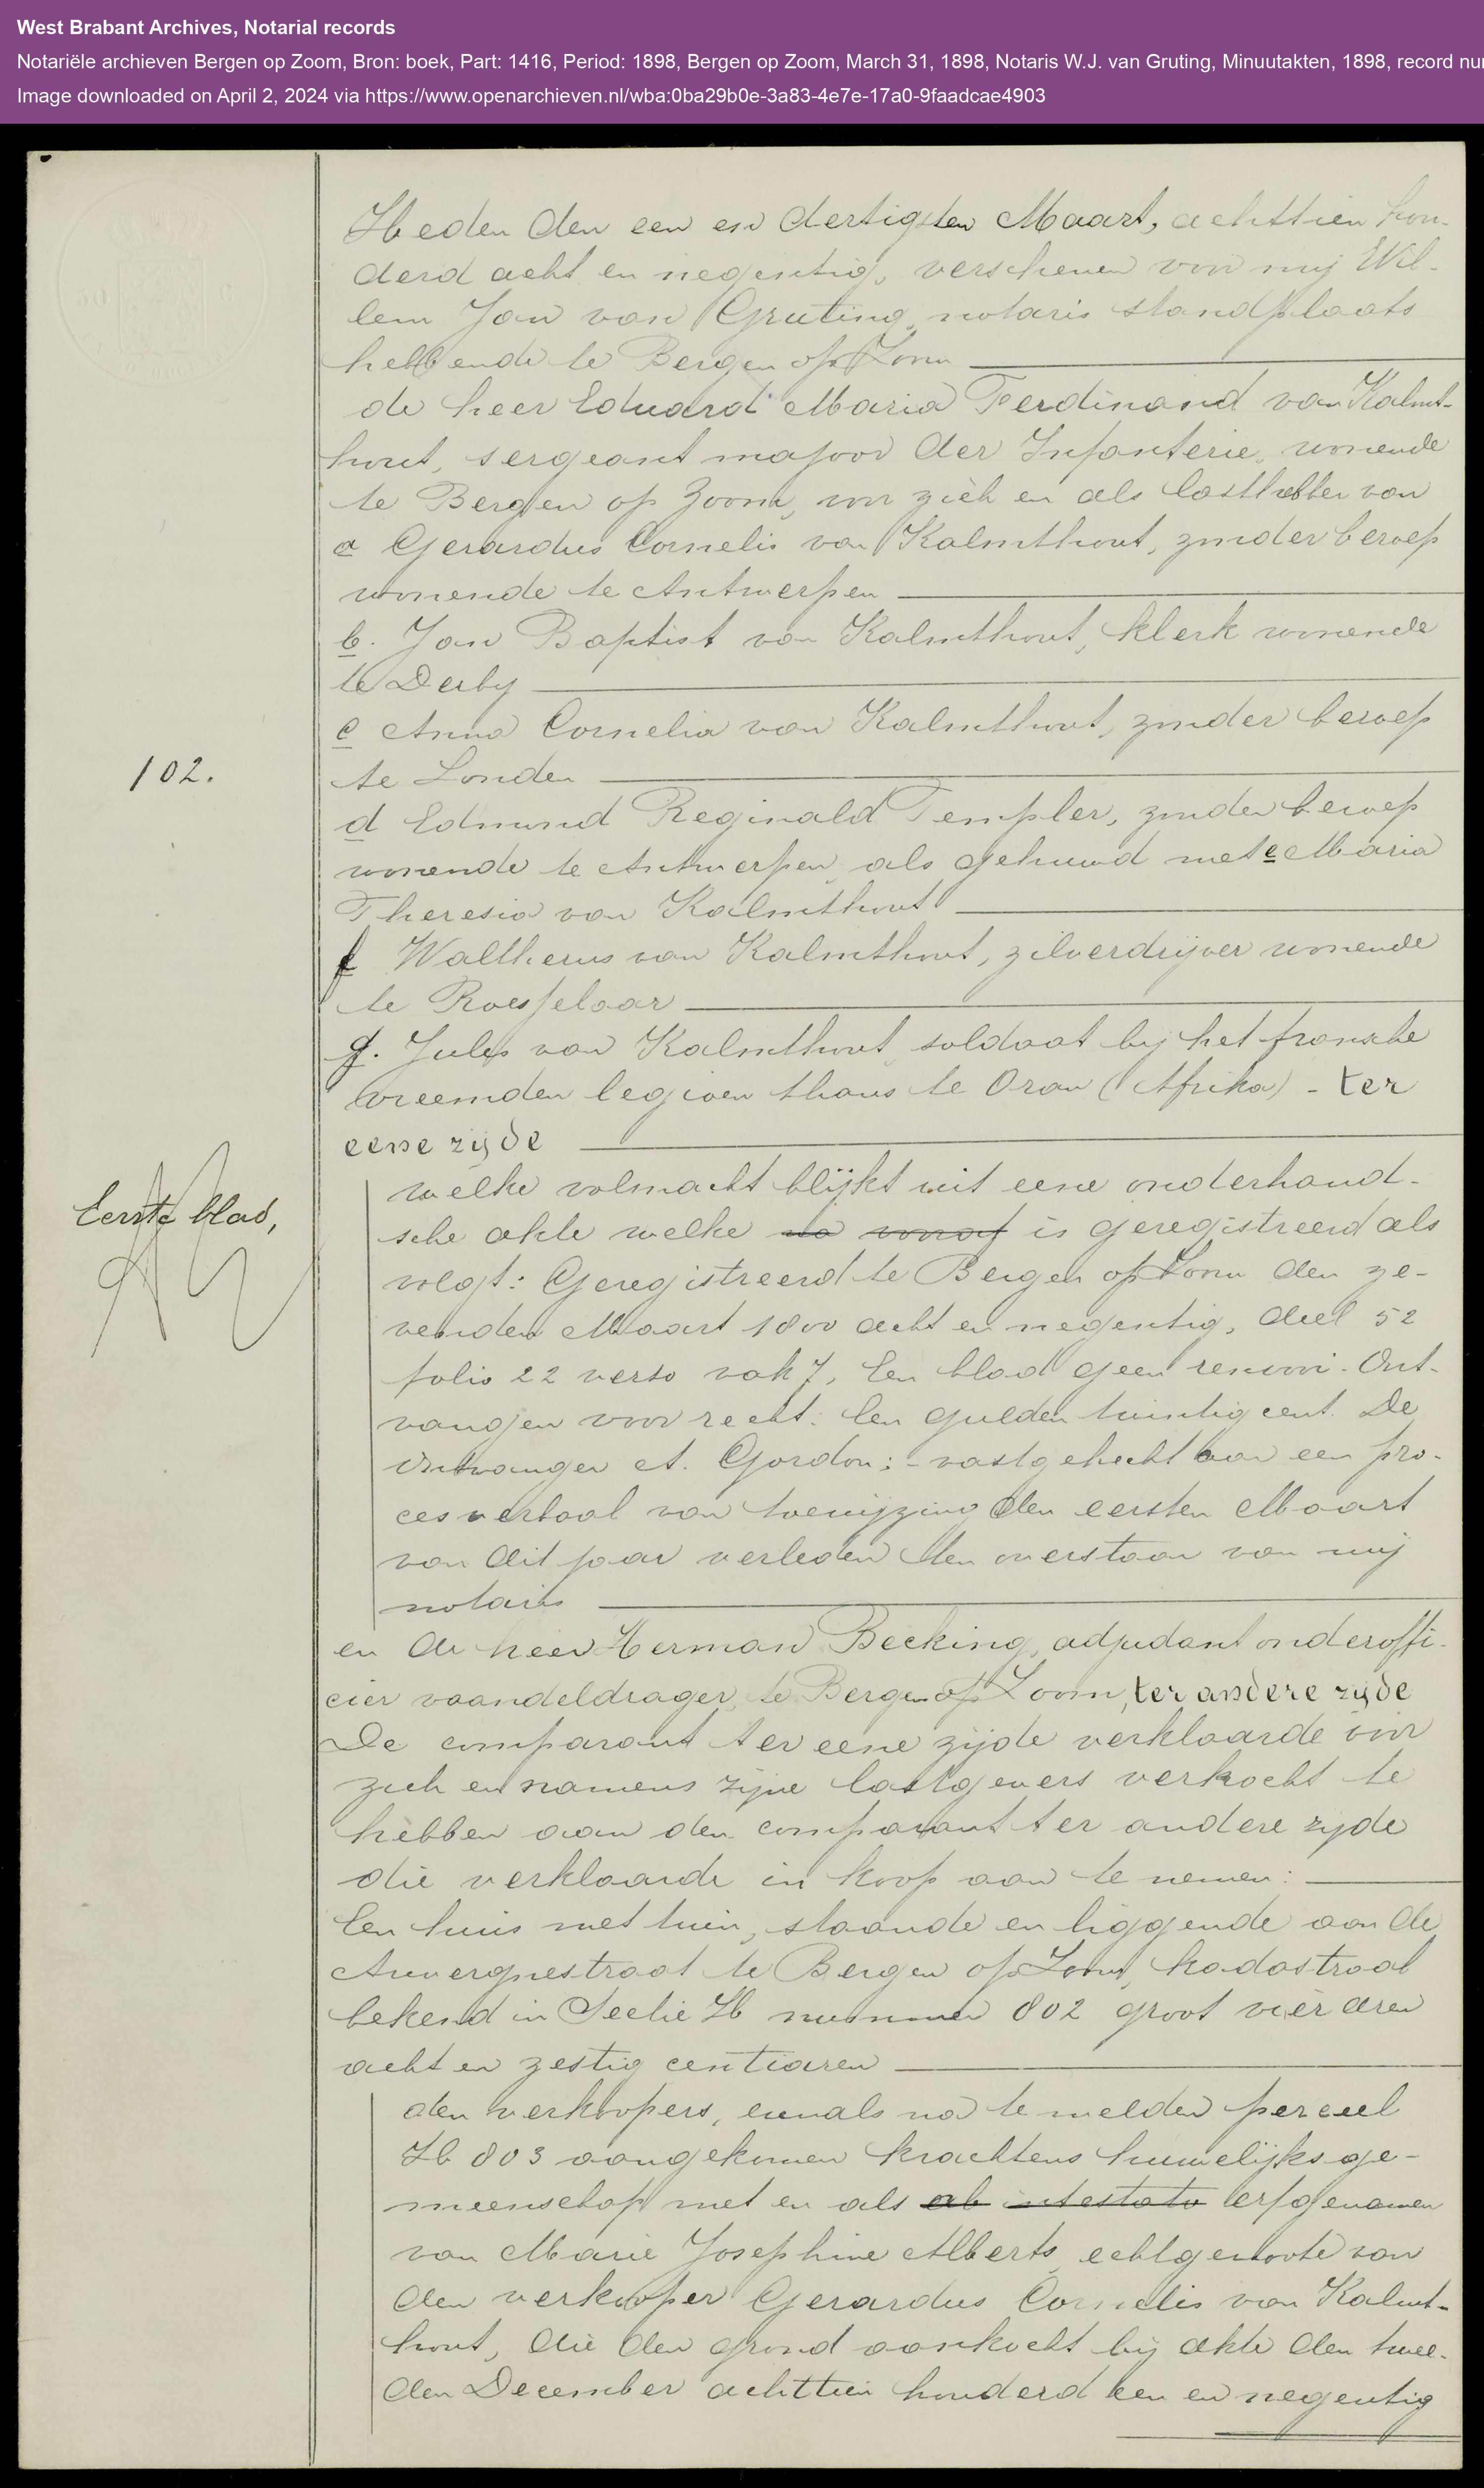 West Brabant Archives, Notarial records
Notariële archieven Bergen op Zoom, Bron: boek, Part: 1416, Period: 1898, Bergen op Zoom, March 31, 1898, Notaris W.J. van Gruting, Minuutakten, 1898, record nu
Image downloaded on April 2, 2024 via https://www.openarchieven.nl/wba:0ba29b0e-3a83-4e7e-17a0-9faadcae4903
Heden den een en dertigsten Maart, achttien hon-
derd acht en negentig, verschenen voor mij Wil-
lem Jan van Gruting, notaris standplaats
hebbende te Bergen op Zoom
de heer Eduard Maria Ferdinand van Kalmt-
hout, sergeant majoor der Infanterie, wonende
te Bergen op Zoom, voor zich en als lasthebber van
a Gerardus Cornelis van Kalmthout, zonder beroep
wonende te Antwerpen
b. Jan Baptist van Kalmthout, klerk wonende
te Derby
c Anna Cornelia van Kalmthout, zonder beroep
te Londen
102.
d Edmund Reginald Templer, zonder beroep
wonende te Antwerpen, als gehuwd met e Maria
Theresia van Kalmthout
f Waltherus van Kalmthout, zilverdrijver wonende
te Roesselaar
g. Jules van Kalmthout, soldaat bij het fransche
vreemden legioen thans te Oran (Afrika) - ter
eene zijde
Eerste blad,
welke volmacht blijkt uit eene onderhand-
sche akte welke na vooraf is geregistreerd als
volgt: Geregistreerd te Bergen op Zoom den ze-
venden Maart 1800 acht en negentig, deel 52
folio 22 verso vak 7, Een blad geen renvooi. Ont-
vangen voor recht: Een gulden twintig cent. De
Ontvanger A. Gordon; - vastgehecht aan een pro-
cesverbaal van toewijzing den eersten Maart
van dit jaar verleden ten overstaan van mij
notaris
en de heer Herman Becking, adjudant onderoffi-
cier vaandeldrager, te Bergen op Zoom, ter andere zijde
De comparant ter eene zijde verklaarde voor
zich en namens zijne lastgevers verkocht te
hebben aan den comparant ter andere zijde
die verklaarde in koop aan te nemen:
Een huis met tuin, staande en liggende aan de
Auvergnestraat te Bergen op Zoom, kadastraal
bekend in Sectie H nummer 802 groot vier aren
acht en zestig centiaren
den verkoopers, evenals na te melden perceel
H 803 aangekomen krachtens huwelijksge-
meenschap met en als ab intestato erfgenamen
van Marie Josephine Alberts, echtgenoote van
den verkooper Gerardus Cornelis van Kalmt-
hout, die den grond aankocht bij akte den twee-
den December achttien honderd een en negentig